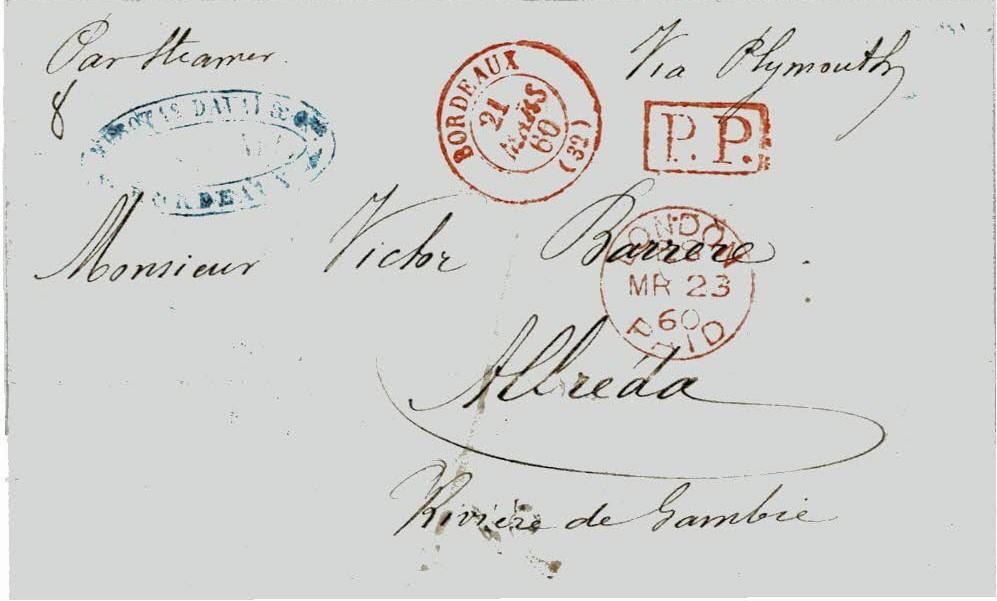 Par Steamer
Via Plymouth
8
BORDEAUX
21
MARS
60
(32)
P.P.
BORDEAUX
Monsieur Victor Barrère.
LONDON
MR 23
60
PAID
Albréda
Rivière de Gambie